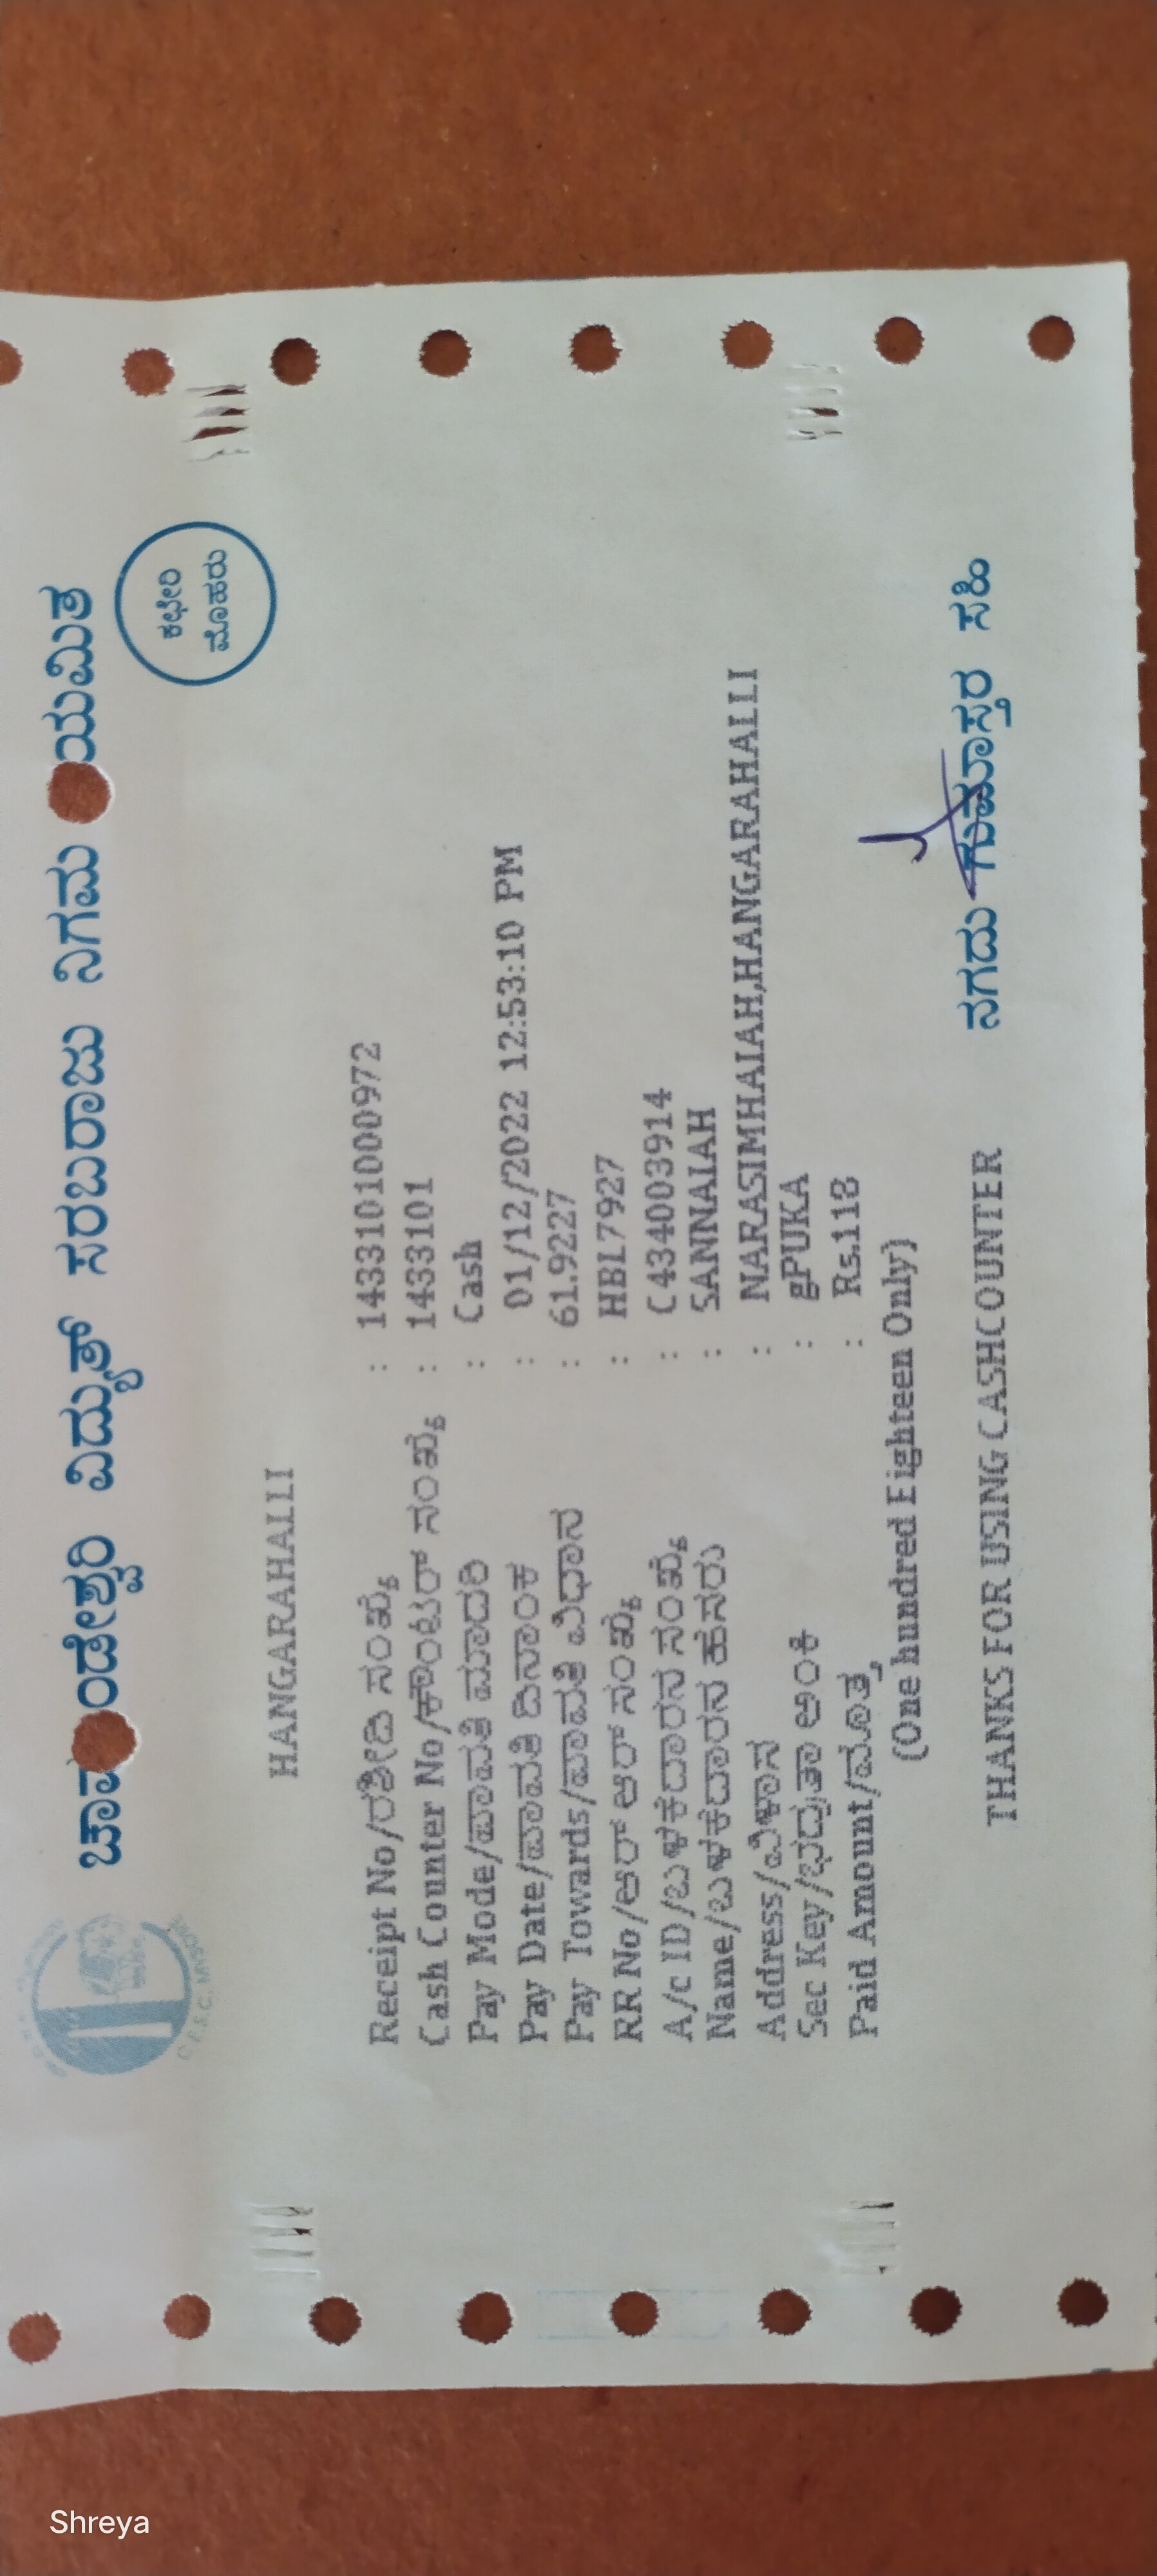 ಚಾಮುಂಡೇಶ್ವರಿ ವಿದ್ಯುತ್ ಸರಬರಾಜು ನಿಗಮ ನಿಯಮಿತ
C.E.S.C. MYSORE
ಕಛೇರಿ
ಮೊಹರು
HANGARAHALLI
Receipt No/ರಶೀದಿ ಸಂಖ್ಯೆ : 1433101000972
Cash Counter No/ಕೌಂಟರ್ ಸಂಖ್ಯೆ : 1433101
Pay Mode/ಪಾವತಿ ಮಾದರಿ : Cash
Pay Date/ಪಾವತಿ ದಿನಾಂಕ : 01/12/2022 12:53:10 PM
Pay Towards/ಪಾವತಿ ವಿಧಾನ : 61.9227
RR No/ಆರ್ ಆರ್ ಸಂಖ್ಯೆ : HBL7927
A/c ID/ಬಳಕೆದಾರನ ಸಂಖ್ಯೆ : C434003914
Name/ಬಳಕೆದಾರನ ಹೆಸರು : SANNAIAH
Address/ವಿಳಾಸ : NARASIMHAIAH,HANGARAHALLI
Sec Key/ಭದ್ರತಾ ಅಂಕಿ : gPUKA
Paid Amount/ಮೊತ್ತ : Rs.118
(One hundred Eighteen Only)
THANKS FOR USING CASHCOUNTER
ನಗದು ಗುಮಾಸ್ತರ ಸಹಿ
Shreya